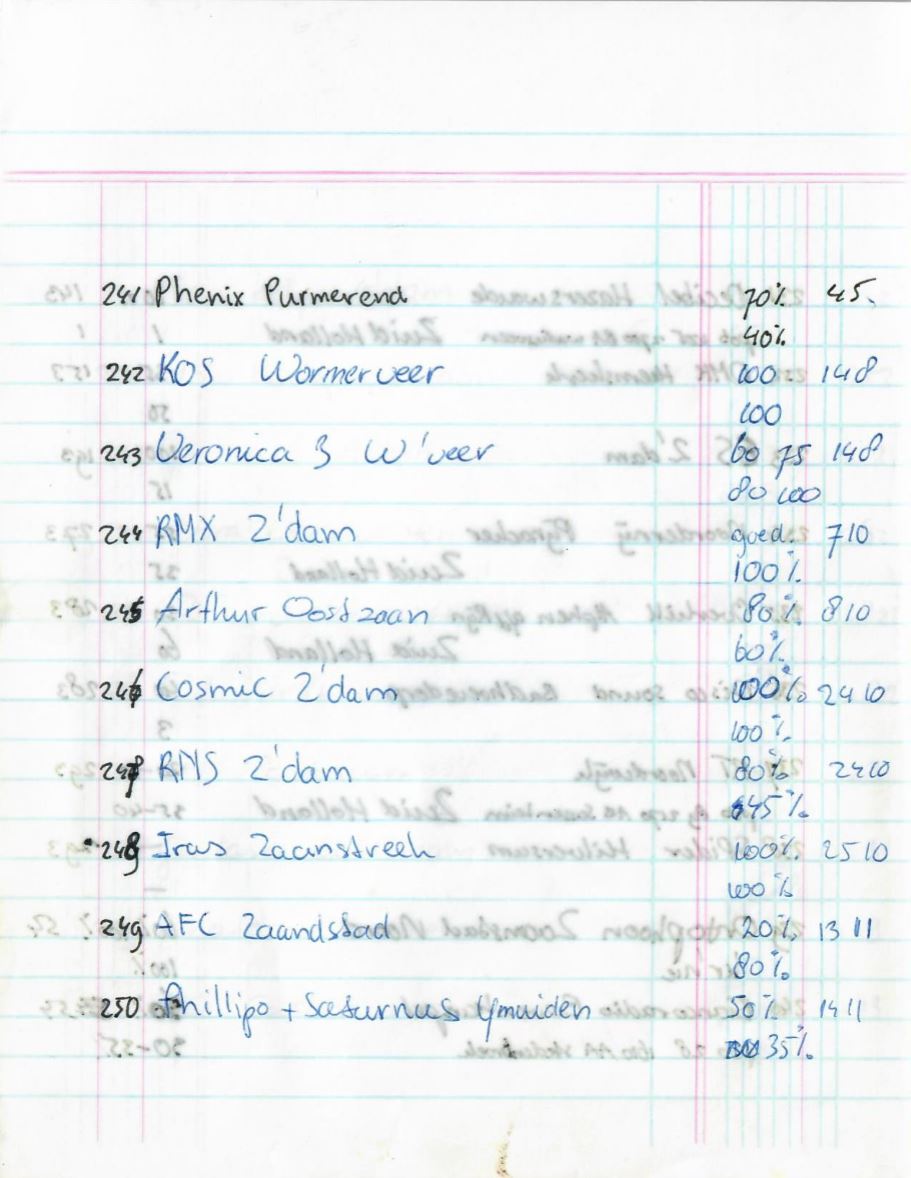 241 Phenix Purmerend 70% 45.
40%
242 KOS Wormerveer 100 148
100
243 Veronica 3 W'veer 60 75 148
80 100
244 RMX Z'dam goed. 710
100%
245 Arthur Oostzaan 80% 810
60%
246 Cosmic Z'dam 100% 2410
100%
247 RNS Z'dam 80% 2410
45%
248 Iras Zaanstreek 100% 2510
100%
249 AFC Zaandstad 20% 13 11
80%
250 Phillipo + Saturnus Ymuiden 50% 1411
35%